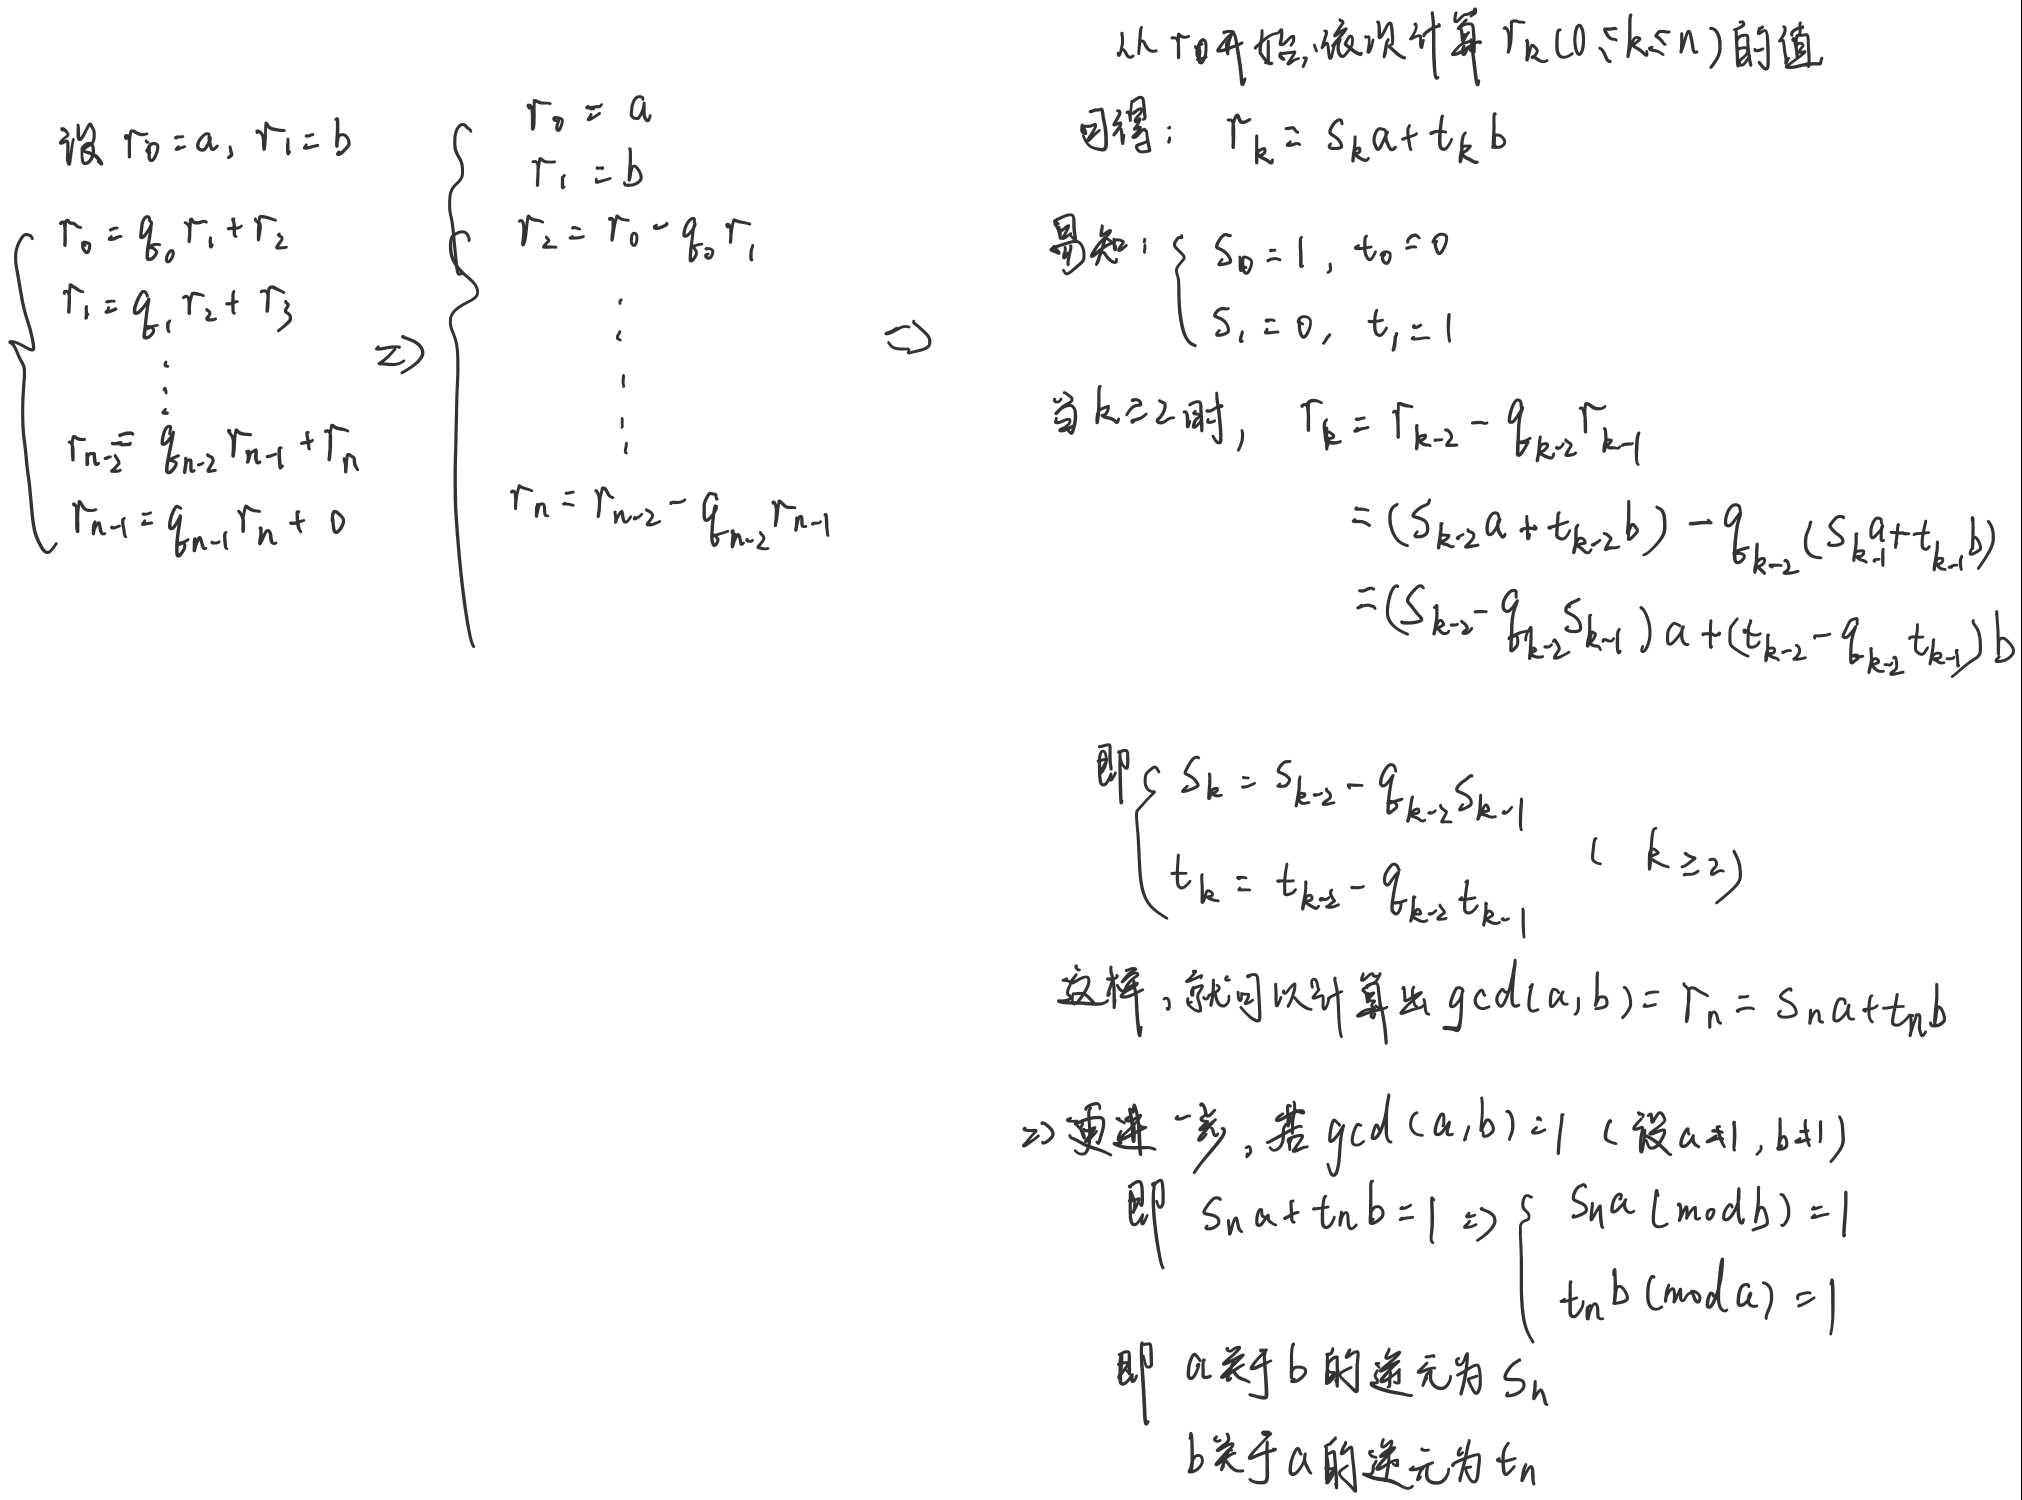 设 r₀ = a, r₁ = b
r₀ = q₀ r₁ + r₂
r₁ = q₁ r₂ + r₃
⋮
rₙ₋₂ = qₙ₋₂ rₙ₋₁ + rₙ
rₙ₋₁ = qₙ₋₁ rₙ + 0
⇒
r₀ = a
r₁ = b
r₂ = r₀ - q₀ r₁
⋮
rₙ = rₙ₋₂ - qₙ₋₂ rₙ₋₁
⇒
从 r₀ 开始, 依次计算 rₖ (0 ≤ k ≤ n) 的值
可得: rₖ = sₖ a + tₖ b
易知: { s₀ = 1, t₀ = 0
s₁ = 0, t₁ = 1
当 k ≥ 2 时, rₖ = rₖ₋₂ - qₖ₋₂ rₖ₋₁
= (sₖ₋₂ a + tₖ₋₂ b) - qₖ₋₂ (sₖ₋₁ a + tₖ₋₁ b)
= (sₖ₋₂ - qₖ₋₂ sₖ₋₁) a + (tₖ₋₂ - qₖ₋₂ tₖ₋₁) b
即 { sₖ = sₖ₋₂ - qₖ₋₂ sₖ₋₁
tₖ = tₖ₋₂ - qₖ₋₂ tₖ₋₁ ( k ≥ 2 )
这样, 就可以计算出 gcd(a, b) = rₙ = sₙ a + tₙ b
⇒ 更进一步, 若 gcd(a, b) = 1 (设 a ≠ 1, b ≠ 1)
即 sₙ a + tₙ b = 1 ⇒ { sₙ a (mod b) = 1
tₙ b (mod a) = 1
即 a 关于 b 的逆元为 sₙ
b 关于 a 的逆元为 tₙ